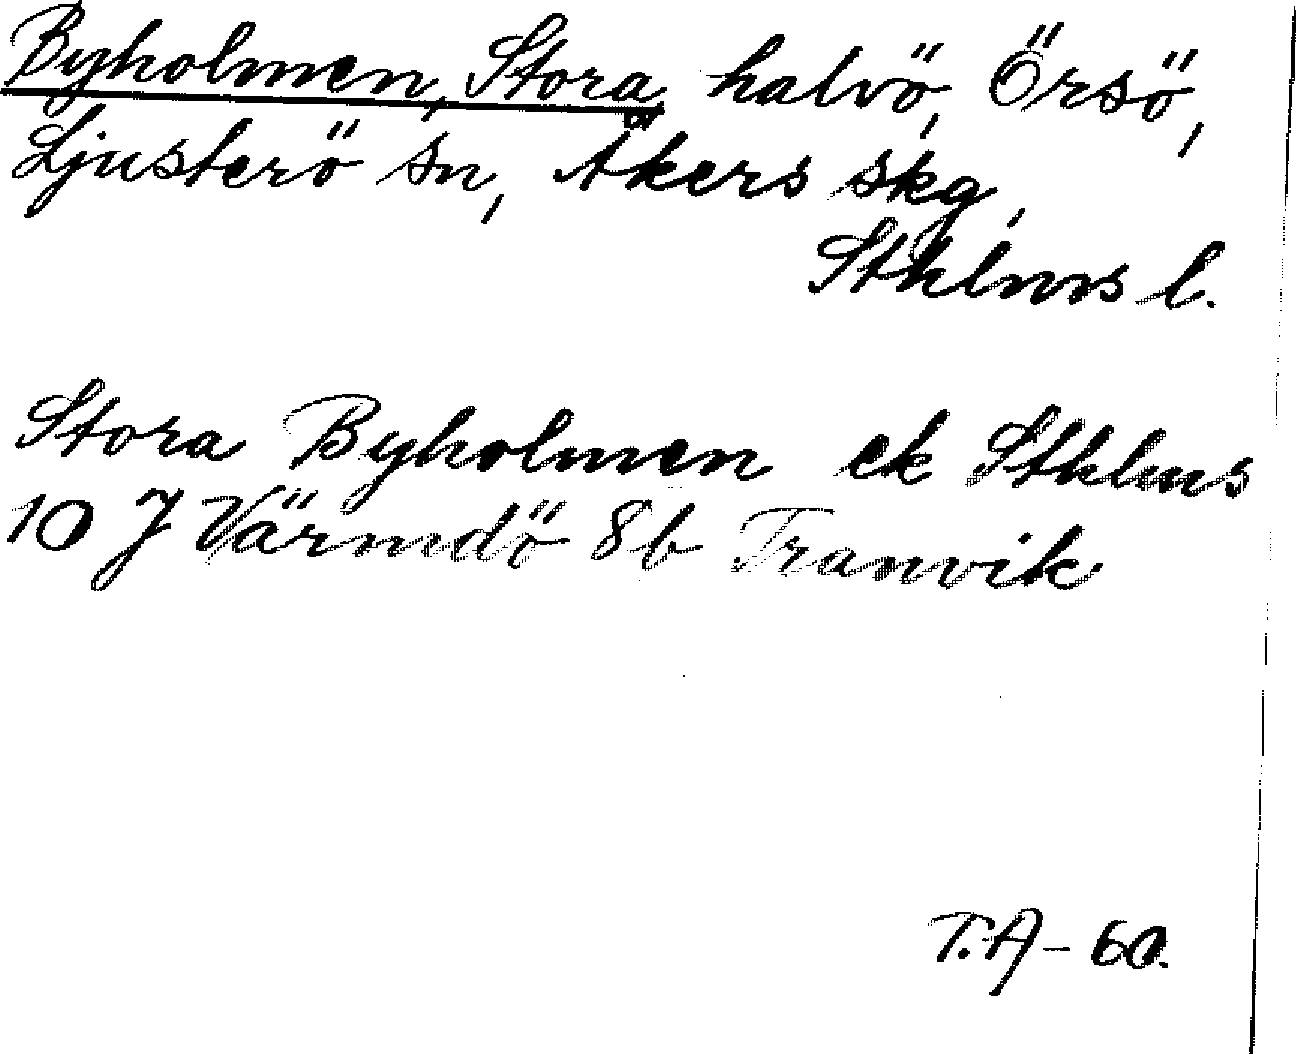 Byholmen, Stora, halvö, Örsö,
Ljusterö sn, Åkers skg,
Sthlms l.
Stora Byholmen ek Sthlms
10 J Värmdö 8b Tranvik
T.A-60.